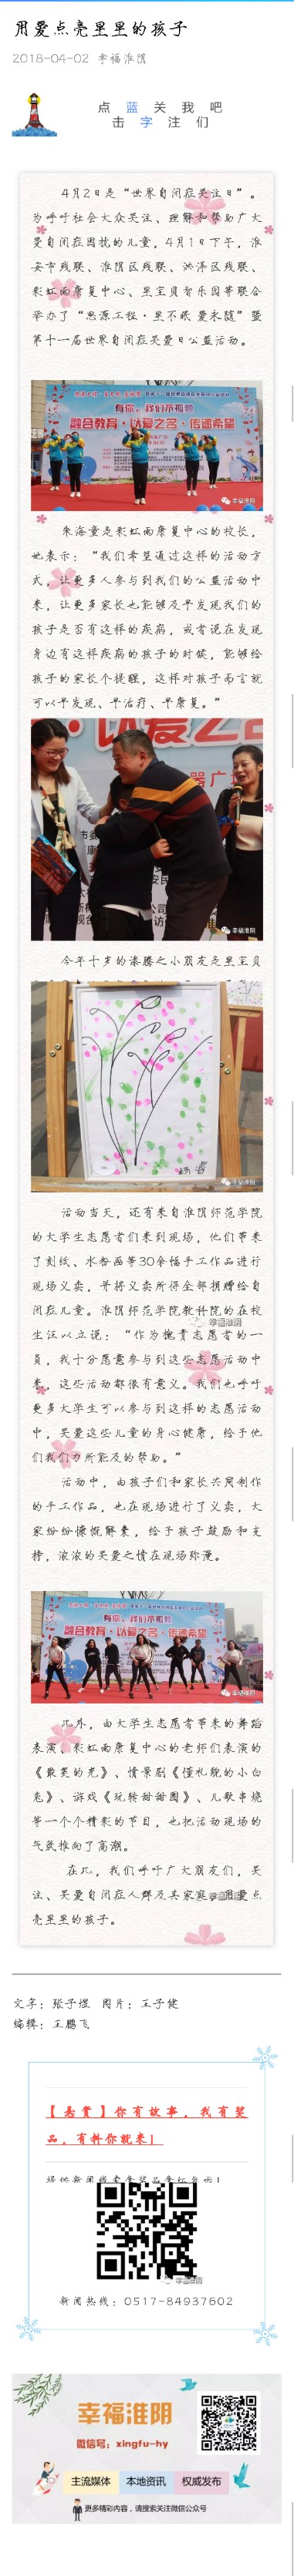 用爱点亮星星的孩子
2018-04-02 幸福淮阴
点 蓝 关 我 吧
击 字 注 们
4月2日是“世界自闭症关注日”。
为呼吁社会大众关注、理解和帮助广大
受自闭症困扰的儿童，4月1日下午，淮
安市残联、淮阴区残联、洪泽区残联、
彩虹雨康复中心、星宝贝智乐园等联合
举办了“思源工程·星不眠 爱永随”暨
第十一届世界自闭症关爱日公益活动。
有你，我们不孤独
融合教育·以爱之名·传递希望
幸福淮阴
朱海童是彩虹雨康复中心的校长，
她表示：“我们希望通过这样的活动方
式，让更多人参与到我们的公益活动中
来，让更多家长也能够及早发现我们的
孩子是否有这样的疾病，或者说在发现
身边有这样疾病的孩子的时候，能够给
孩子的家长个提醒，这样对孩子而言就
可以早发现、早治疗、早康复。”
幸福淮阴
今年十岁的漆腾之小朋友是星宝贝
幸福淮阴
活动当天，还有来自淮阴师范学院
的大学生志愿者们来到现场，他们带来
了刻纸、水粉画等30余幅手工作品进行
现场义卖，并将义卖所得全部捐赠给自
闭症儿童。淮阴师范学院教科院的在校
幸福淮阴
生汪以立说：“作为抚青志愿者的一
员，我十分愿意参与到这些志愿活动中
来，这些活动都很有意义。我们也呼吁
更多大学生可以参与到这样的志愿活动
中，关爱这些儿童的身心健康，给予他
们我们力所能及的帮助。”
活动中，由孩子们和家长共同制作
的手工作品，也在现场进行了义卖，大
家纷纷慷慨解囊，给予孩子鼓励和支
持，浓浓的关爱之情在现场弥漫。
有你，我们不孤独
融合教育·以爱之名·传递希望
幸福淮阴
此外，由大学生志愿者带来的舞蹈
表演、彩虹雨康复中心的老师们表演的
《最美的光》、情景剧《懂礼貌的小白
兔》、游戏《玩转甜甜圈》、儿歌串烧
等一个个精彩的节目，也把活动现场的
气氛推向了高潮。
在此，我们呼吁广大朋友们，关
注、关爱自闭症人群及其家庭，用爱点
亮星星的孩子。
文字：张子煜 图片：王子健
编辑：王鹏飞
【悬赏】你有故事，我有奖
品，有料你就来！
幸福淮阴
新闻热线：0517-84937602
幸福淮阴
微信号：xingfu-hy
主流媒体 本地资讯 权威发布
更多精彩内容，请搜索关注微信公众号